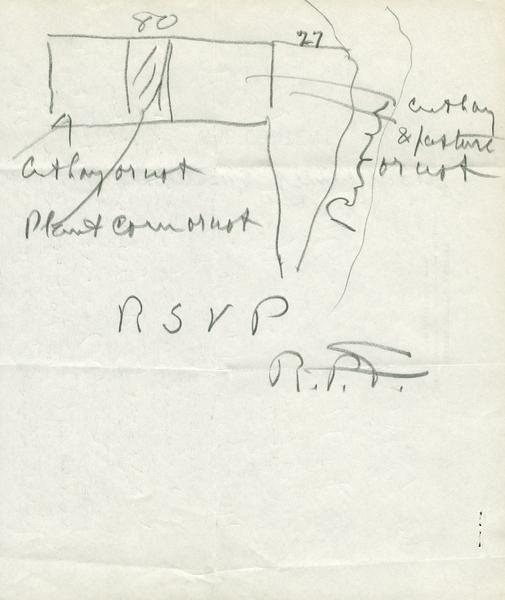 80
27
Cut hay
& pasture
or not
Cut hay or not
Plant Corn or not
R S V P
R.P.T.